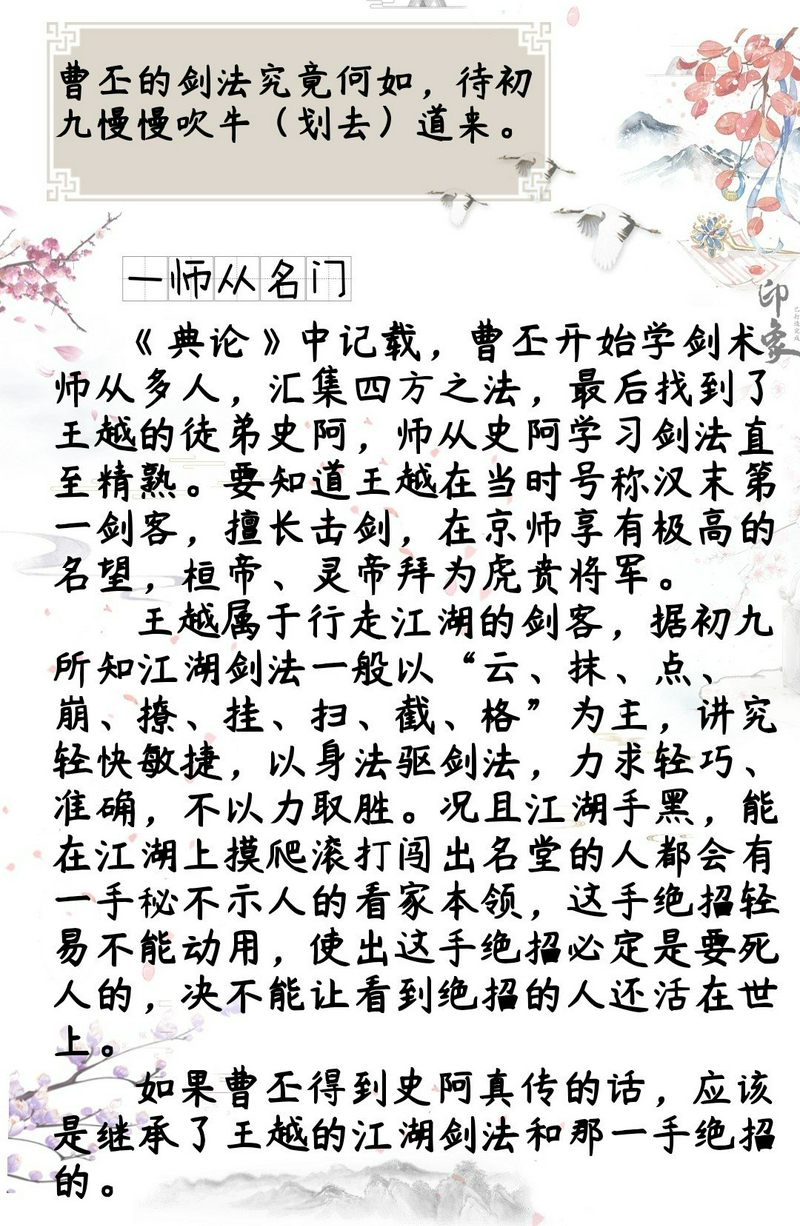 曹丕的剑法究竟何如，待初
九慢慢吹牛（划去）道来。
一师从名门
《典论》中记载，曹丕开始学剑术
师从多人，汇集四方之法，最后找到了
王越的徒弟史阿，师从史阿学习剑法直
至精熟。要知道王越在当时号称汉末第
一剑客，擅长击剑，在京师享有极高的
名望，桓帝、灵帝拜为虎贲将军。
王越属于行走江湖的剑客，据初九
所知江湖剑法一般以“云、抹、点、
崩、撩、挂、扫、截、格”为主，讲究
轻快敏捷，以身法驱剑法，力求轻巧、
准确，不以力取胜。况且江湖手黑，能
在江湖上摸爬滚打闯出名堂的人都会有
一手秘不示人的看家本领，这手绝招轻
易不能动用，使出这手绝招必定是要死
人的，决不能让看到绝招的人还活在世
上。
如果曹丕得到史阿真传的话，应该
是继承了王越的江湖剑法和那一手绝招
的。
印象